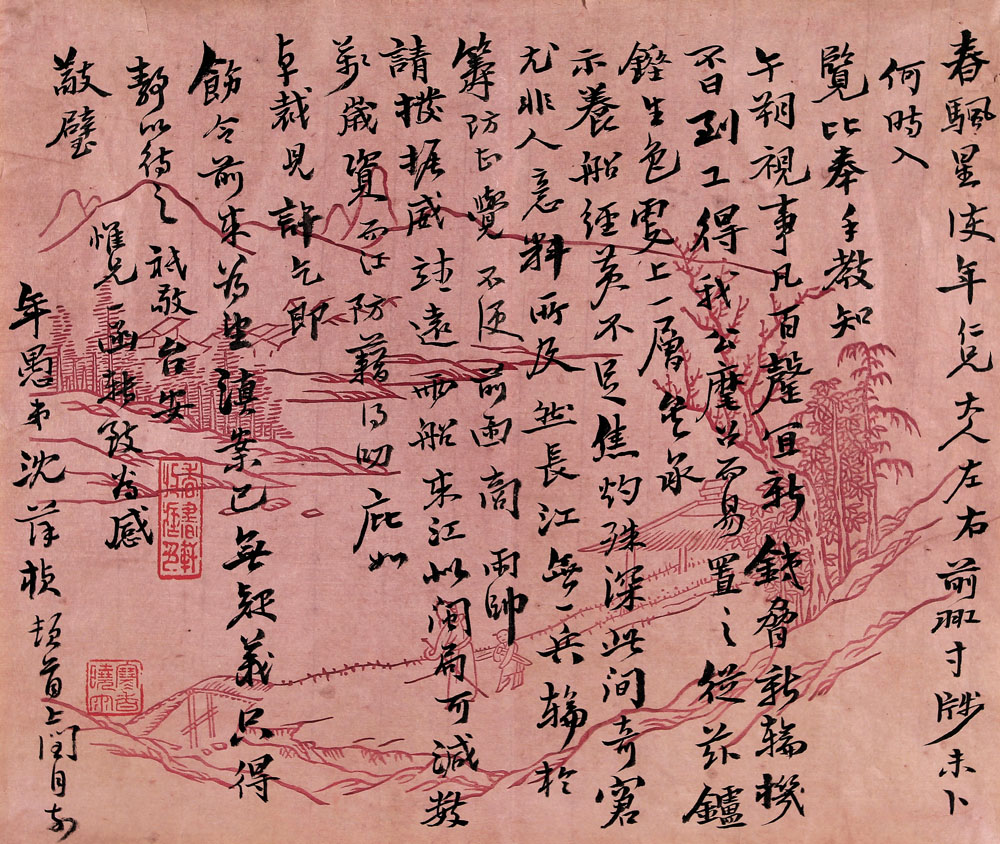 春颿星使年仁兄大人左右前泐寸牋未卜
何時入
覽比奉手教知
午朔視事凡百釐宜新鉄脅新輪機
不日到工得我公麾召而易置之從茲鑪
錘生色更上一層矣承
示養船經費不足焦灼殊深此间奇窘
尤非人意料所及然長江無一兵輪於
籌防亦覺不便前函商兩帥
請撥振威靖遠兩船來江以閩局可減數
萬歲資而江防藉得叨庇如
卓裁見許乞即
飭令前來为禱滇案已無疑義只得
靜以待之祗敬台安
惟兄一函轉致为感
敬璧
年愚弟沈葆楨頓首上閏月